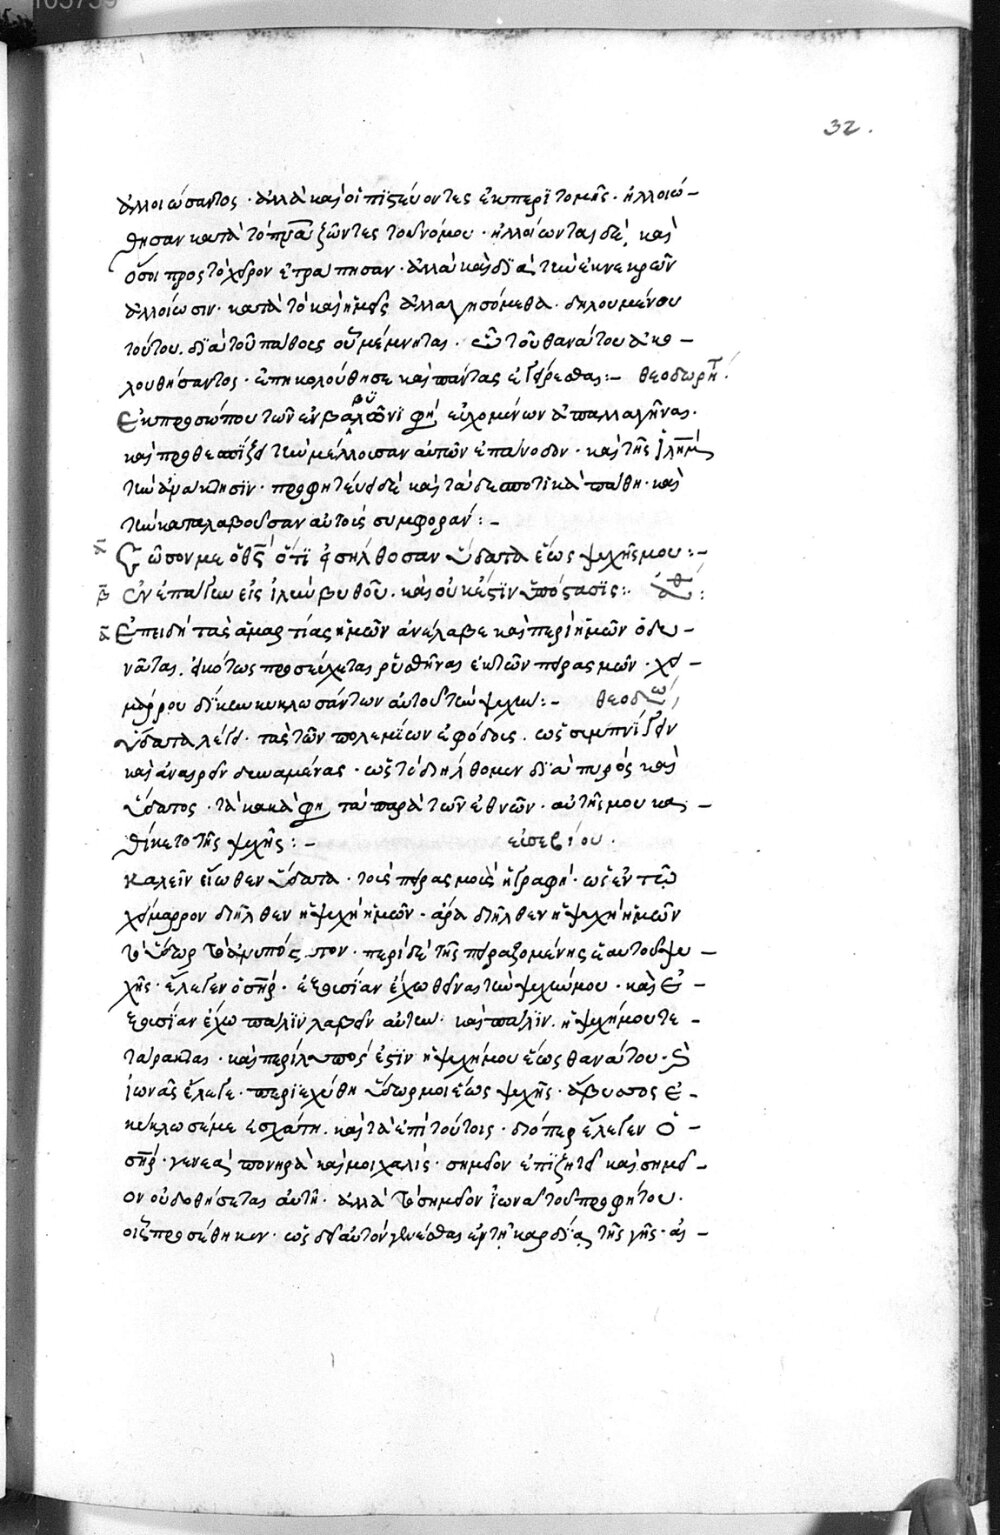 32.
ἀλλοιώσαντος · ἀλλὰ καὶ οἱ πιστεύοντες ἐκ περιτομῆς · ἠλλοιώ-
θησαν κατὰ τὸ πνα ζῶντες τοῦ νόμου · ἠλλοίωνται δὲ, καὶ
ὅσοι προς τὸ χεῖρον ἐτράπησαν · ἀλλὰ καὶ διὰ τὴν ἐκ νεκρῶν
ἀλλοίωσιν · κατὰ τὸ καὶ ἡμεῖς ἀλλαγησόμεθα · δηλουμένου
τούτου. διὰ τοῦ πάθους οὗ μέμνηται · ὧ τοῦ θανάτου ἀκο-
λουθήσαντος · ἐπηκολούθησε καὶ πάντας ἐγείρεσθαι :- θεοδωρήτ
Ἐκ προσώπου τῶν ἐν βαβυλῶνι φη εὐχομένων ἀπαλλαγῆναι ·
καὶ προθεσπίζει τὴν μέλλουσαν αὐτῶν ἐπάνοδον · καὶ τῆς ἰλημ
τὴν ἀνάκτησιν · προφητεύει δὲ καὶ τὰ δεσποτικὰ πάθη · καὶ
τὴν καταλαβοῦσαν αὐτοὺς συμφοράν :-
Σῶσον με ὁ θς ὅτι εἰσήλθοσαν ὕδατα ἕως ψυχῆς μου :-
β Ἐνεπάγην εἰς ἰλὺν βυθοῦ · καὶ οὐκ ἔστιν ὑπόστασις :
α Ἐπειδὴ τὰς ἁμαρτίας ἡμῶν ἀνέλαβε καὶ περὶ ἡμῶν ὀδυ-
νᾶται. εἰκότως προσεύχεται ῥυσθῆναι ἐκ τῶν πειρασμῶν · χει-
μάρρου δίκην κυκλωσάντων αὐτοῦ τὴν ψυχὴν :- θεοδω
Ὕδατα λέγει · τὰς τῶν πολεμίων ἐφόδους · ὡς συμπνίγειν
καὶ ἀναιρεῖν δυναμένας · ὡς τὸ διήλθομεν διὰ πυρὸς καὶ
ὕδατος · τὰ κακὰ φη τὰ παρὰ τῶν ἐθνῶν · αὐτῆς μου κα-
θίκετο τῆς ψυχῆς :- εὐσεβίου ·
καλεῖν εἴωθεν ὕδατα · τοὺς πειρασμοὺς ἡ γραφή · ὡς ἐν τῶ
χείμαρρον διῆλθεν ἡ ψυχὴ ἡμῶν · ἄρα διῆλθεν ἡ ψυχὴ ἡμῶν
τὸ ὕδωρ τὸ ἀνυπόστατον · περὶ δὲ τῆς πειραζομένης ἑαυτοῦ ψυ-
χῆς · ἔλεγεν ὁ σηρ · ἐξουσίαν ἔχω θεῖναι τὴν ψυχήν μου · καὶ ἐ-
ξουσίαν ἔχω πάλιν λαβεῖν αὐτὴν · καὶ πάλιν. ἡ ψυχή μου τε-
τάρακται · καὶ περίλυπός ἐστιν ἡ ψυχή μου ἕως θανάτου · ὁ
ἰωνᾶς ἔλεγε · περιεχύθη ὕδωρ μοι ἕως ψυχῆς · ἄβυσσος ἐ-
κύκλωσέ με ἐσχάτη. καὶ τὰ ἐπὶ τούτοις · διόπερ ἔλεγεν ὁ
σηρ · γενεὰ πονηρὰ καὶ μοιχαλὶς · σημεῖον ἐπιζητεῖ καὶ σημεῖ-
ον οὐ δοθήσεται αὐτῆ · ἀλλὰ τὸ σημεῖον ἰωνᾶ τοῦ προφήτου ·
οἷς προσέθηκεν · ὡς δεῖ αὐτὸν γενέσθαι ἐν τῆ καρδία τῆς γῆς ·